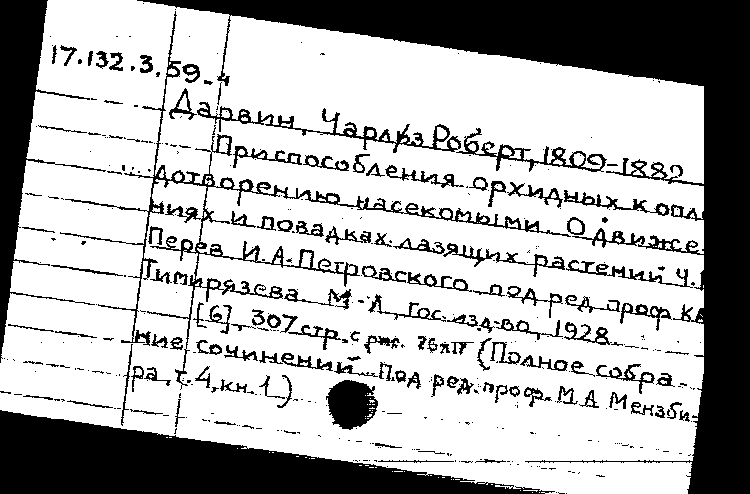 17.132.3.59-4
Дарвин, Чарльз Роберт, 1809-1882
Приспособления орхидных к опло
дотворению насекомыми. О движе-
ниях и повадках лазящих растений Ч.
Перев И.А.Петровского под ред проф К
Тимирязева М-Л, Гос.изд-во, 1928
[6], 307 стр. с рис. (Полное собра-
ние сочинений Под ред.проф. М А Мензби-
ра, т.4, кн.1)